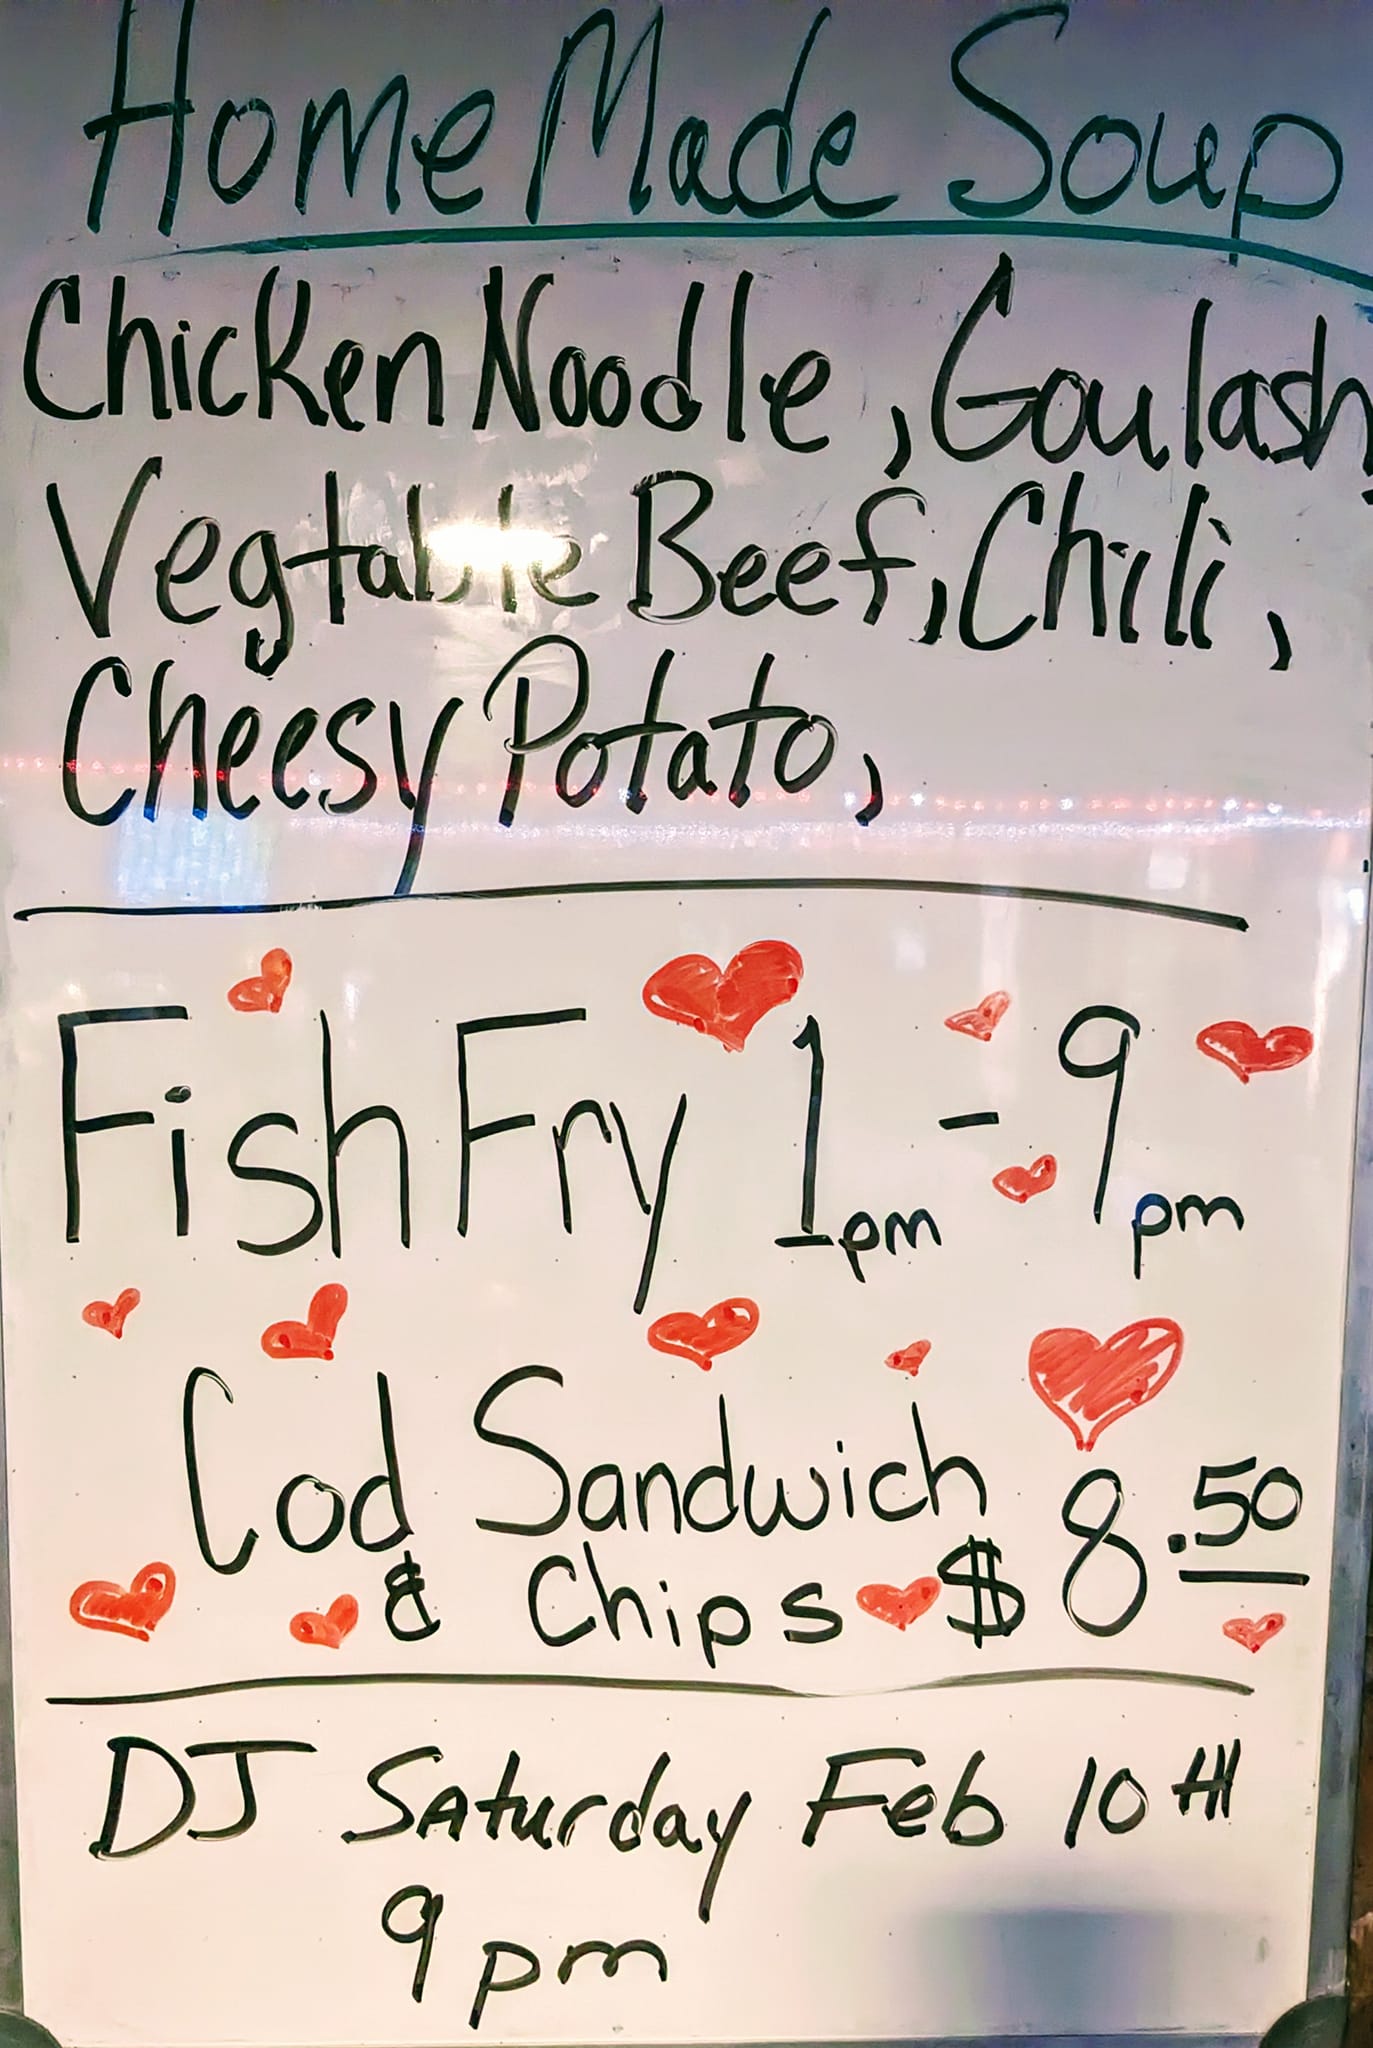 Home Made Soup
Chicken Noodle, Goulash,
Vegtable Beef, Chili,
Cheesy Potato,
Fish Fry 1pm - 9pm
Cod Sandwich
& Chips $8.50
DJ Saturday Feb 10TH
9pm